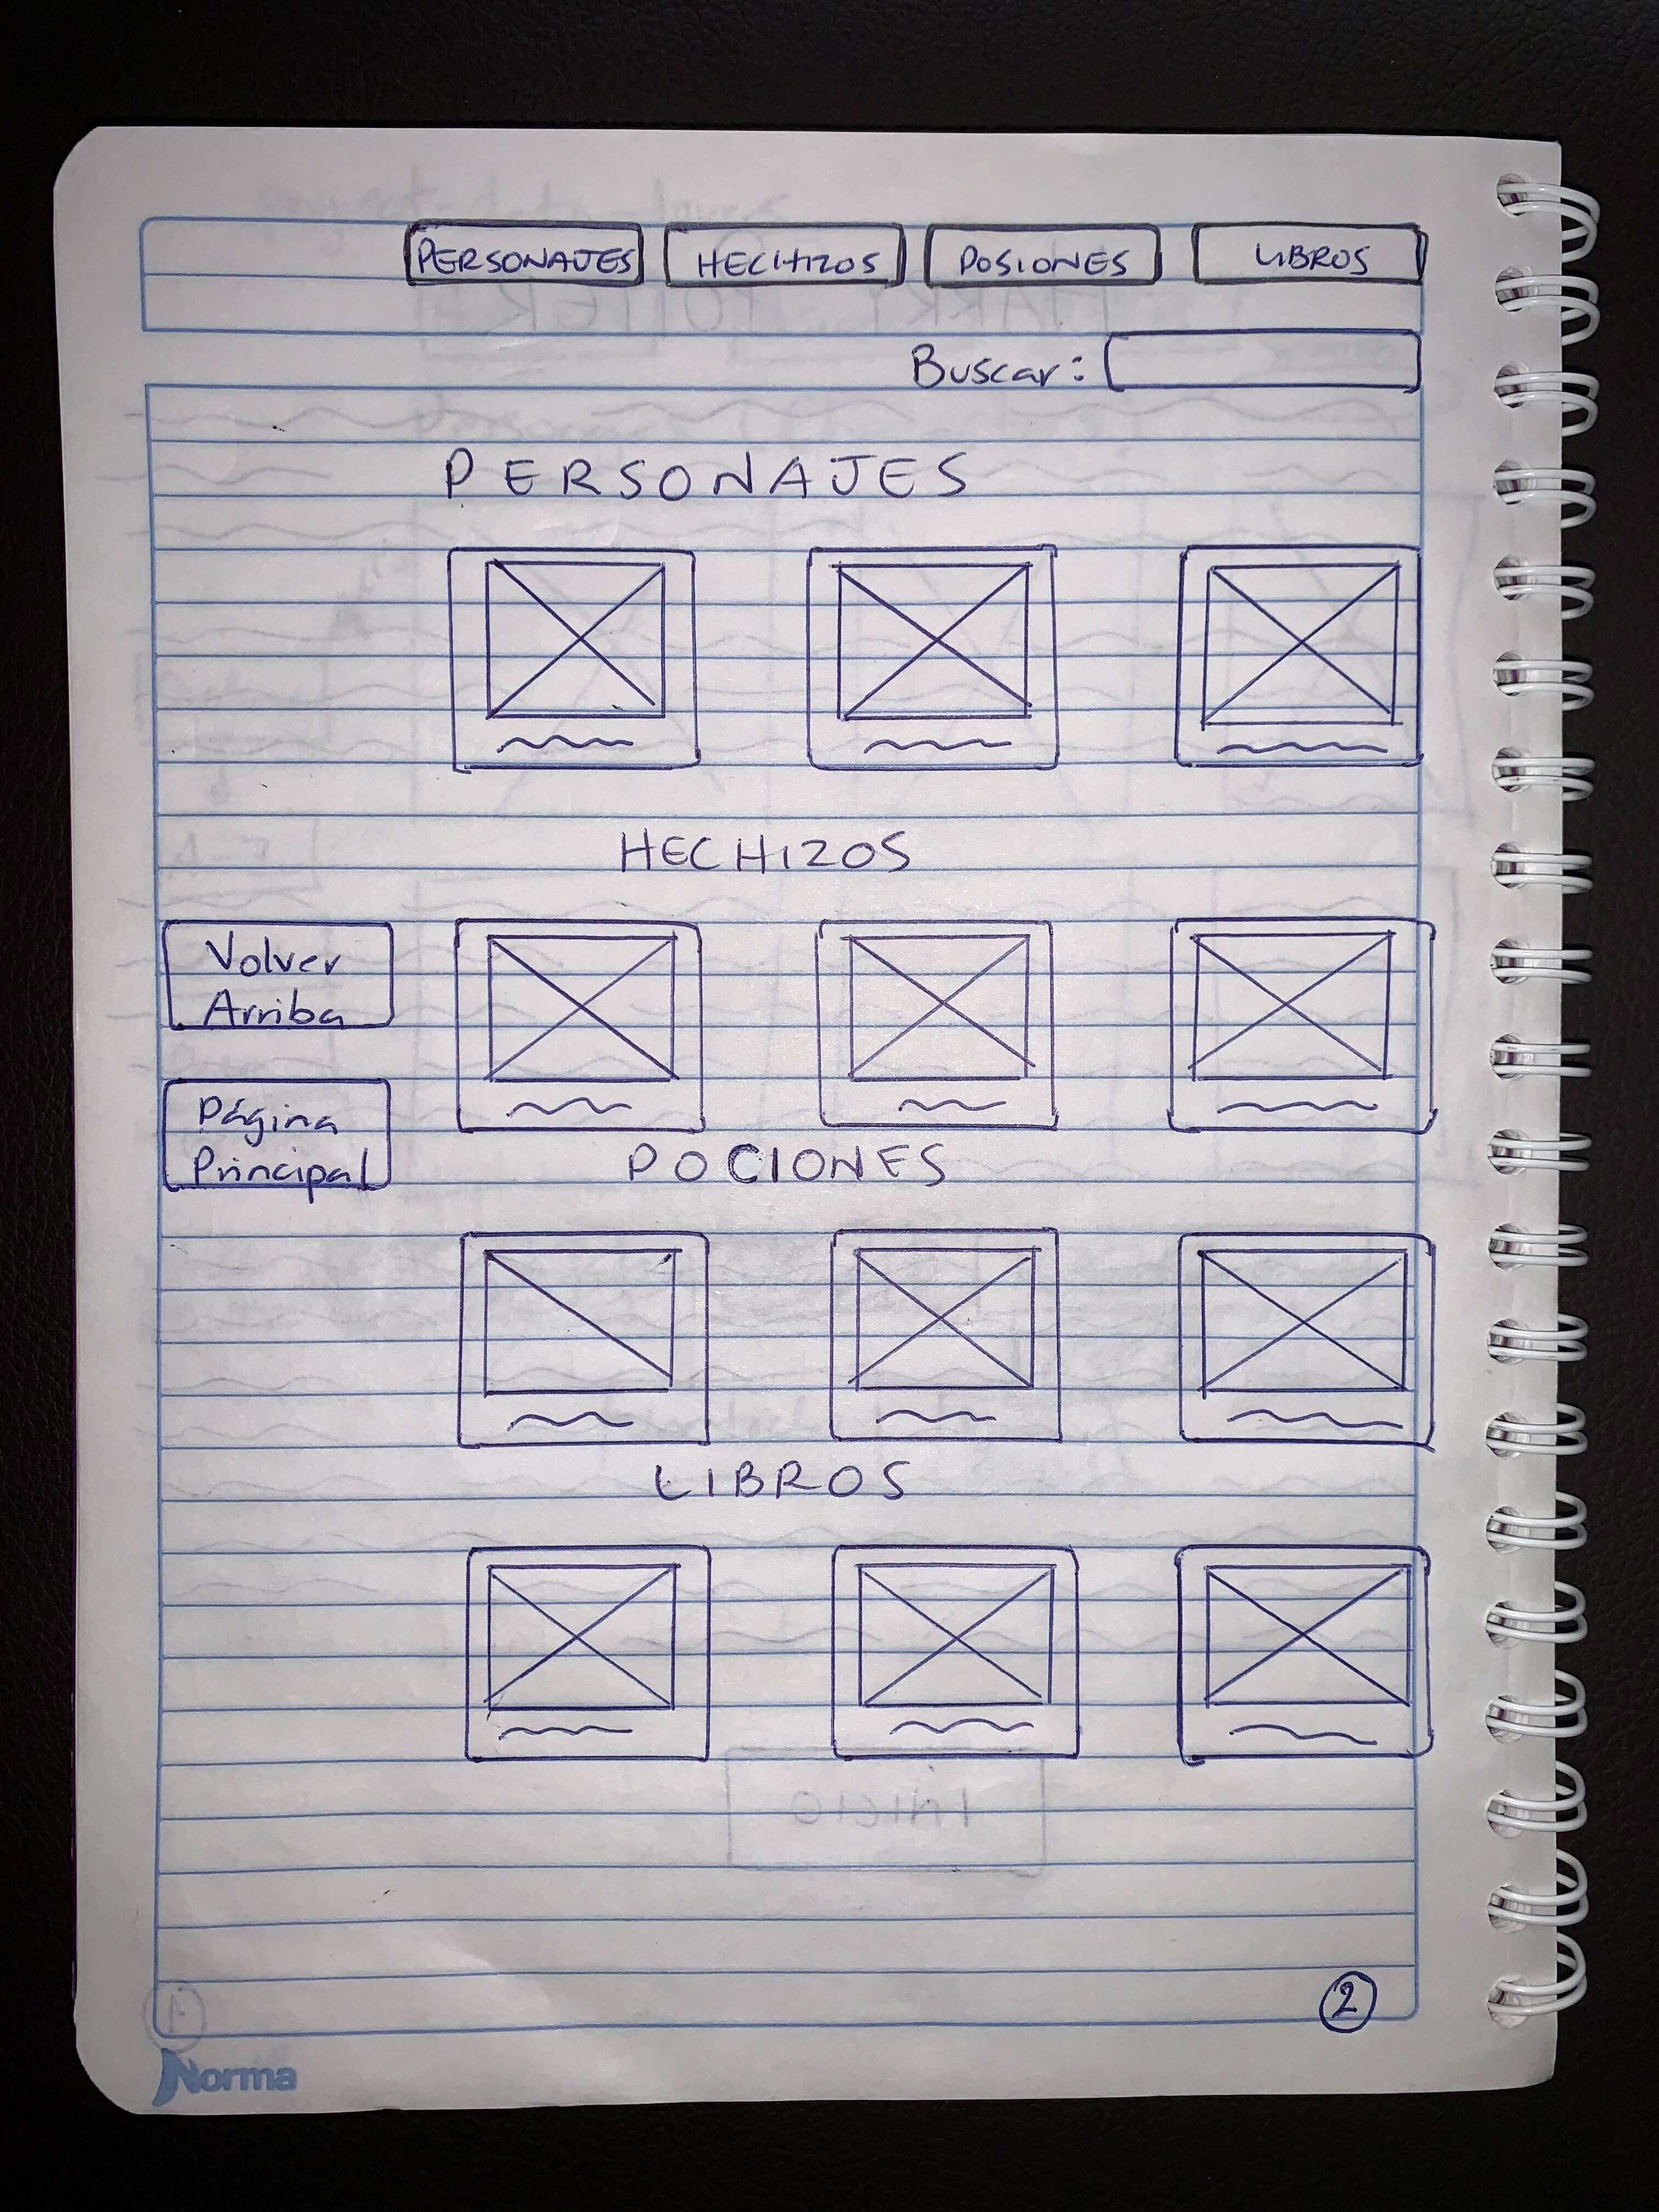 PERSONAJES HECHIZOS POSIONES LIBROS
Buscar:
PERSONAJES
HECHIZOS
Volver
Arriba
Página
Principal
POCIONES
LIBROS
INICIO
2
1
Norma